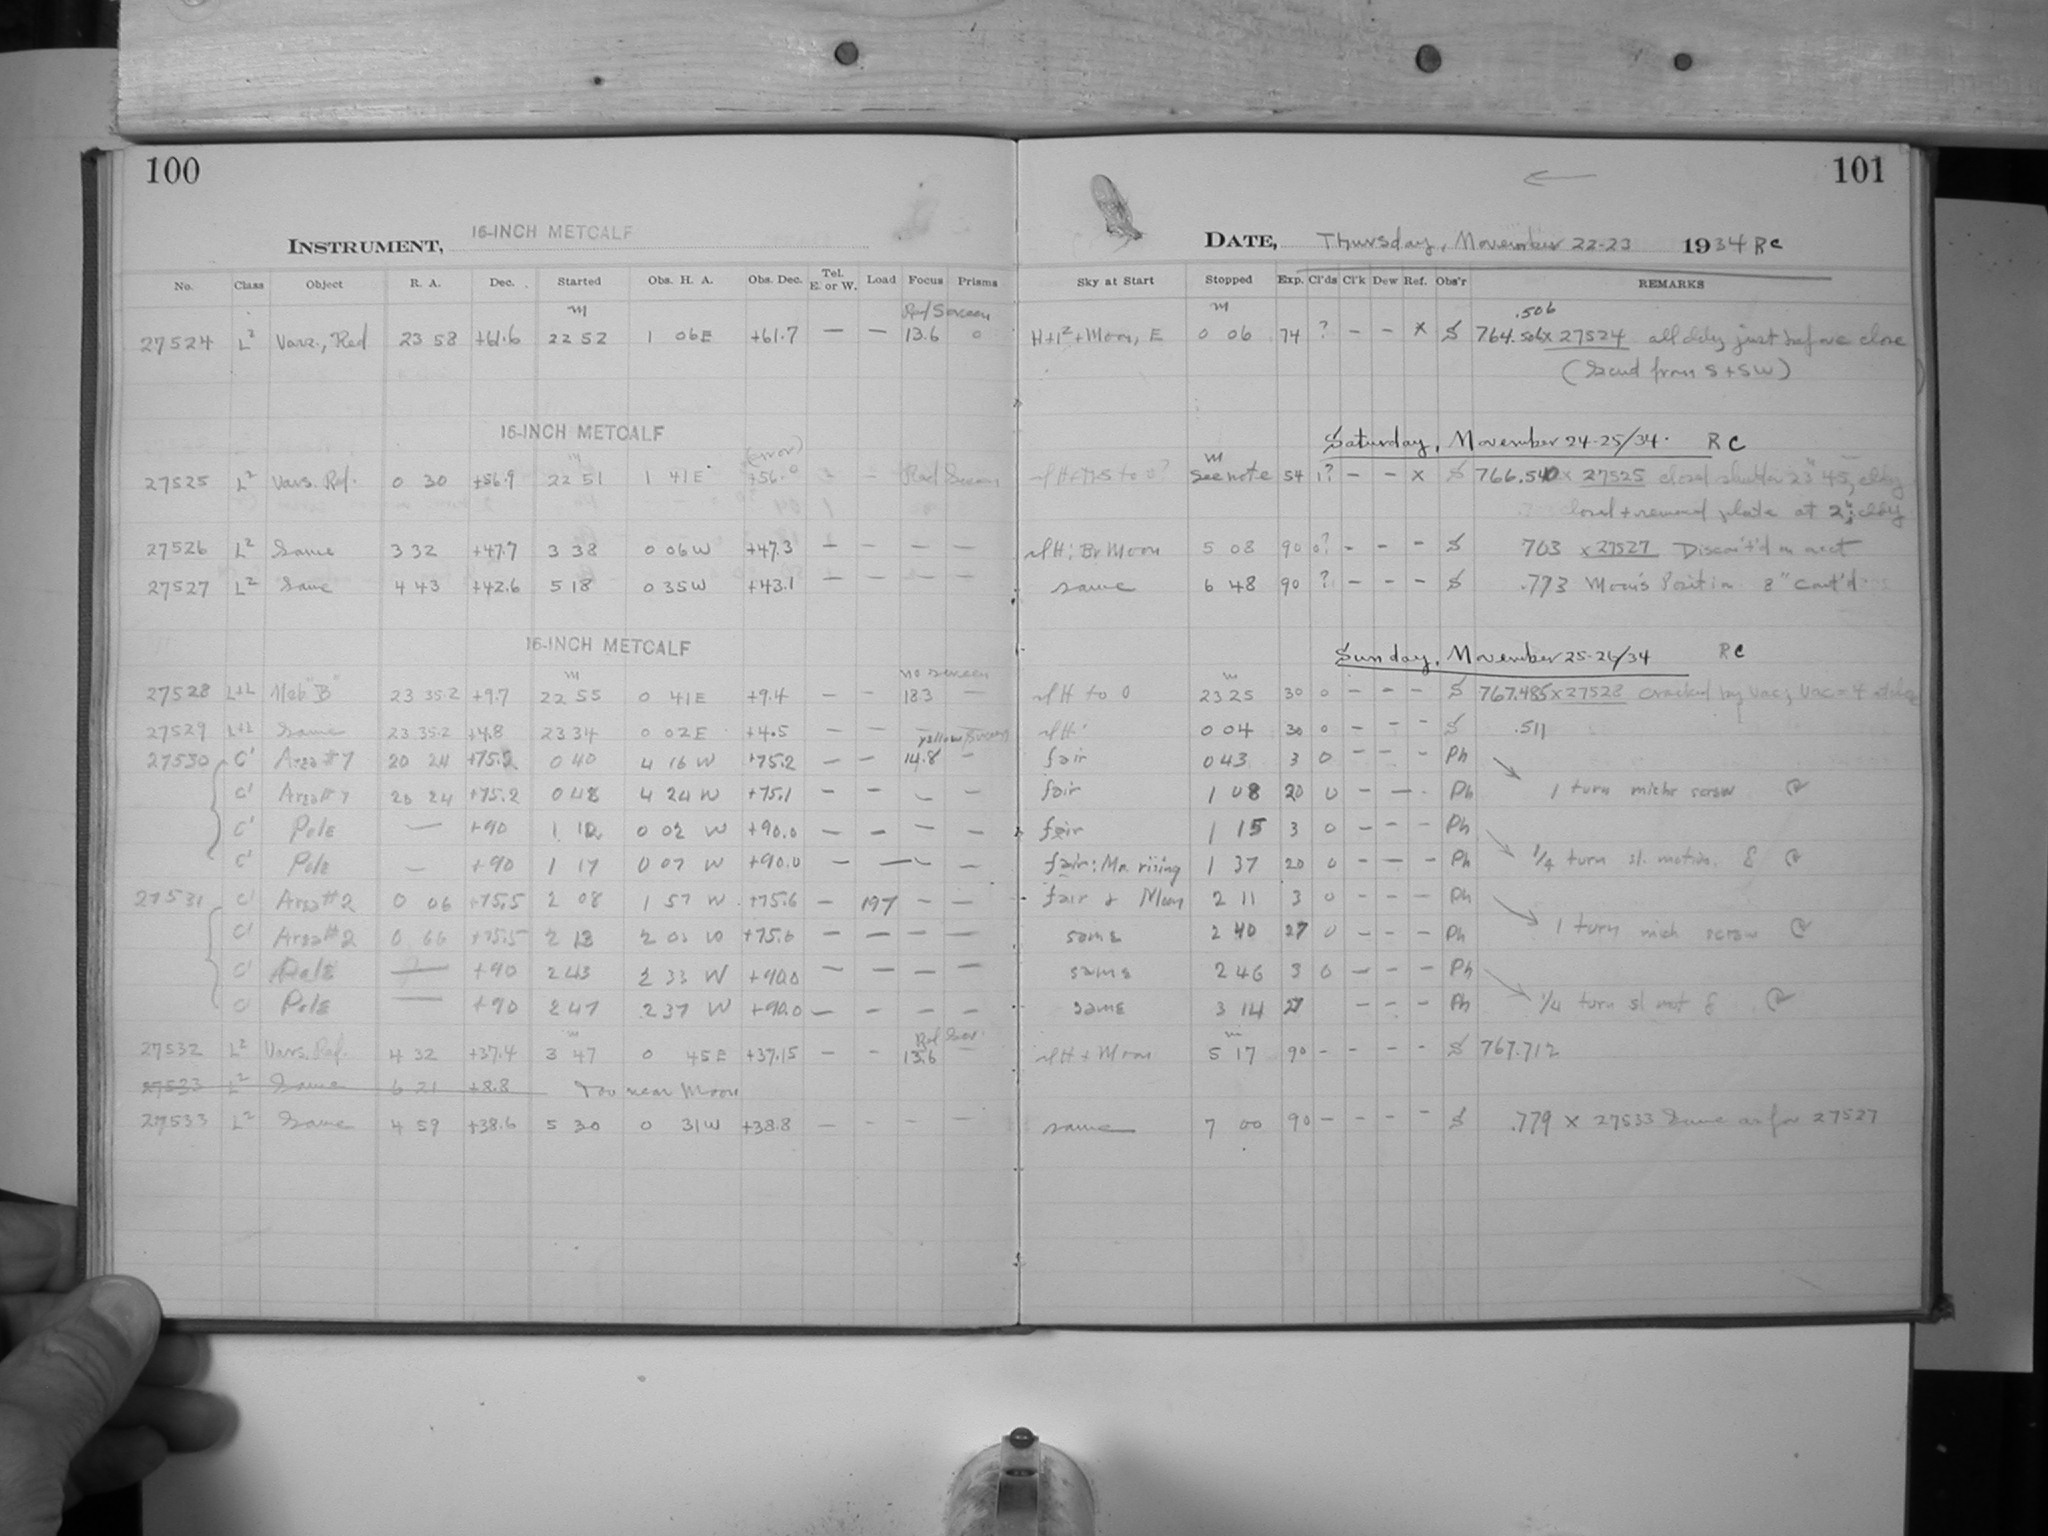 100
101
INSTRUMENT, 16-INCH METCALF
DATE, Thursday, November 22-23 1934 RC
No. Class Object R. A. Dec. Started Obs. H. A. Obs. Dec. Tel. E. or W. Load Focus Prisms Sky at Start Stopped Exp. Cl'ds Cl'k Dew Ref. Obs'r REMARKS
m Red Screen m .506
27524 L² Vars., Red 23 58 +61.6 22 52 1 06E +61.7 — — 13.6 0 H+1²+Moon, E 0 06 74 ? – – × S 764.506× 27524 all cldy just before close
(Scud from S+SW)
16-INCH METCALF Saturday, November 24-25/34. RC
(error)
27525 L² Vars. Ref. 0 30 +56.9 22 51 1 41E +56.0 – Red Screen to 0? See note 54 1? – – × S 766.540× 27525 closed shutter 23 45, cldy
closed + removed plate at 2; cldy
27526 L² Same 3 32 +47.7 3 38 0 06W +47.3 – – – – H; Br Moon 5 08 90 0? – – – S 703 × 27527 Discon't'd
27527 L² Same 4 43 +42.6 5 18 0 35W +43.1 – – – – same 6 48 90 ? – – – S .773 Moon's Position Cont'd
16-INCH METCALF Sunday, November 25-26/34 RC
m no screen m
27528 L+L "B" 23 35.2 +9.7 22 55 0 41E +9.4 – – 18.3 – H to 0 23 25 30 0 – – – S 767.485×27528 cracked by vac; Vac=4
27529 L+L Same 23 35.2 +4.8 23 34 0 02E +4.5 – – H 0 04 30 0 – – – S .511
yellow screen
27530 C' Area#7 20 24 +75.2 0 40 4 16 W +75.2 – – 14.8 – fair 0 43 3 0 – – – Ph
C' Area#7 20 24 +75.2 0 48 4 24 W +75.1 – – – – fair 1 08 20 0 – – – Ph 1 turn screw
C' Pole — +90 1 12 0 02 W +90.0 – – – – fair 1 15 3 0 – – – Ph
C' Pole – +90 1 17 0 07 W +90.0 – – – – fair: Mn. rising 1 37 20 0 – – – Ph 1/4 turn sl. motion.
27531 C' Area#2 0 06 +75.5 2 08 1 57 W +75.6 – 197 – – fair + Moon 2 11 3 0 – – – Ph
C' Area#2 0 06 +75.5 2 13 2 03 W +75.6 – – – – same 2 40 27 0 – – – Ph 1 turn mich screw
C' Pole — +90 2 43 2 33 W +90.0 – – – – same 2 46 3 0 – – – Ph
C' Pole — +90 2 47 2 37 W +90.0 – – – – same 3 14 27 – – – Ph 1/4 turn sl mot
m Red Scr. m
27532 L² Vars. Ref. 4 32 +37.4 3 47 0 45E +37.15 – – 13.6 – H + Moon 5 17 90 – – – – S 767.712
27533 L² Same 6 21 +8.8 Too near Moon
27533 L² Same 4 59 +38.6 5 30 0 31W +38.8 – – – – same 7 00 90 – – – – S .779 × 27533 Same as for 27527